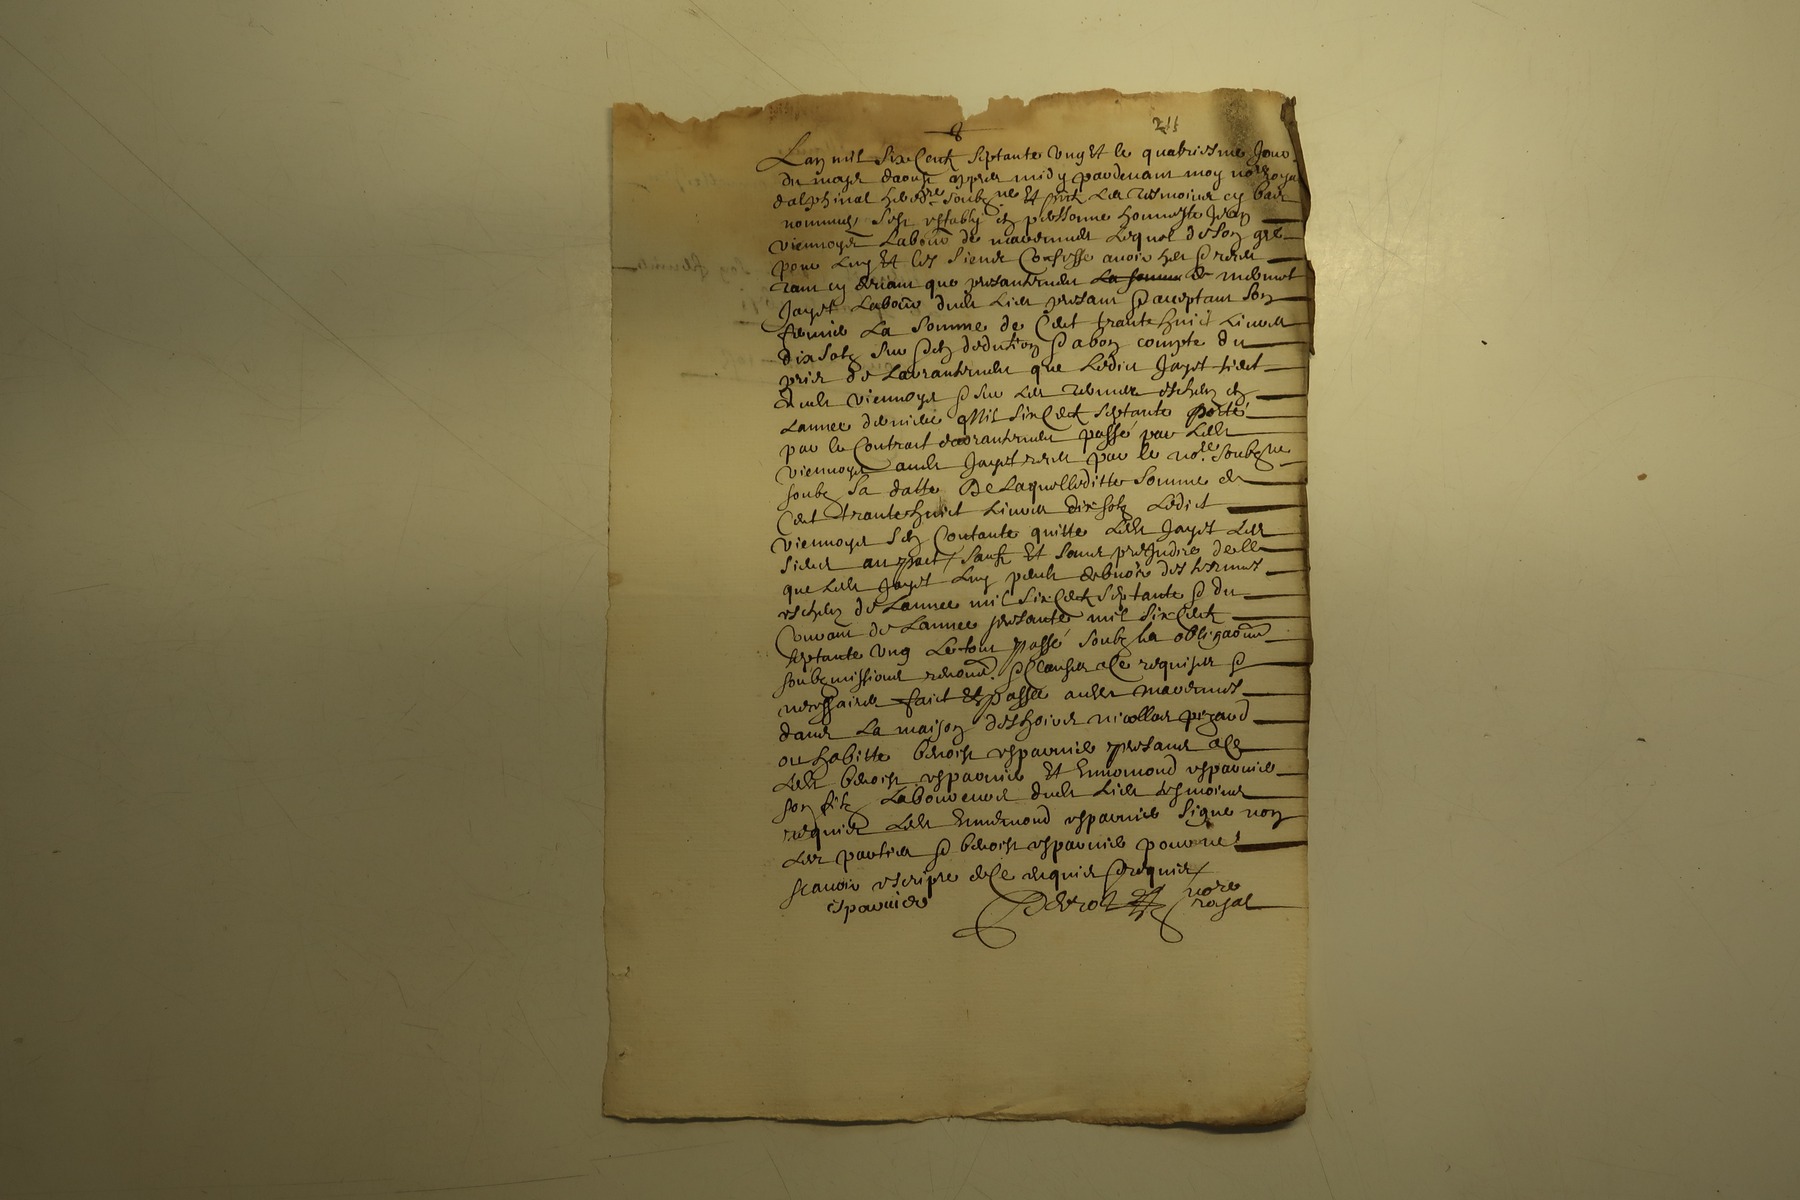 8
211
Lan mil six Centz septante ung Et le quatriesme Jour
du moys daoust apres midy pardevant moy no.re royal
dalphinal hered.re soub.ne Et pntz Les tesmoins cy bas
nommes sest estably en personne honneste Jean
viennoys Labour de Lequel de son gré
pour Luy Et les siens Confesse avoir heu & receu
tant cy devant que presantement La somme de
Jayet Labour dudt Lieu presant & acceptant son
fermier La somme de Cent trante huict Livres
dix solz sur & en deduction & a bon compte du
prix de Larrantement que Ledict Jayet tient
dudt viennoys & sur Les termes escheuz en
Lannee derniere Mil six Centz septante porté
par le Contract darrantement passé par Ledt
viennoys audt Jayet receu par le no.re soub.ne
soubz sa datte De Laquelleditte somme de
Cent trante huict Livres dix solz Ledict
viennoys sen Contante quitte Ledt Jayet Les
siens avec pact / Sauf Et sans prejudice de
que Ledt Jayet Luy peult debvoir des termes
escheuz de Lannee mil six Centz septante & du
Courant de Lannee presante mil six Centz
septante ung Le tout passé soubz les obligaons
soubzmissions renond. & clauses a Ce requises &
necessaires faict Et passé audt
dans La maison des hoirs nicollas
ou habitte benoist esparnier presans a Ce
Ledt benoist esparnier Et Ennemond esparnier
son filz Laboureurs dudt Lieu tesmoins
requis Ledt Ennemond esparnier signe non
Les parties & benoist esparnier pour ne
scavoir escripre de Ce enquis & requis
esparnier
no.re
royal